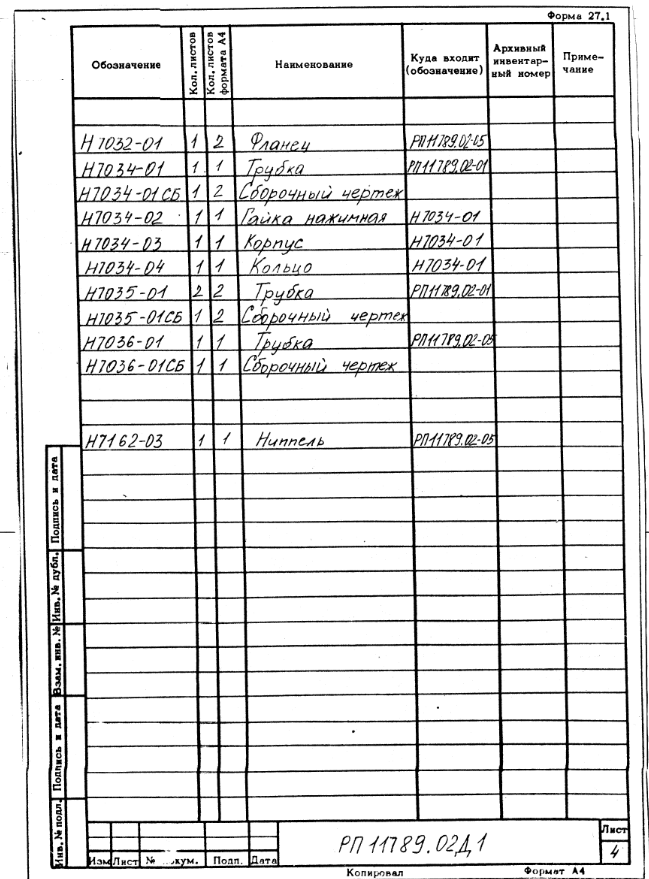 Форма 27.1
Обозначение Кол. листов Кол. листов формата А4 Наименование Куда входит (обозначение) Архивный инвентарный номер Примечание
Н7032-01 1 2 Фланец РП11789.02-05
Н7034-01 1 1 Трубка РП11789.02-01
Н7034-01СБ 1 2 Сборочный чертеж
Н7034-02 1 1 Гайка нажимная Н7034-01
Н7034-03 1 1 Корпус Н7034-01
Н7034-04 1 1 Кольцо Н7034-01
Н7035-01 2 2 Трубка РП11789.02-01
Н7035-01СБ 1 2 Сборочный чертеж
Н7036-01 1 1 Трубка РП11789.02-05
Н7036-01СБ 1 1 Сборочный чертеж
Н7162-03 1 1 Ниппель РП11789.02-05
Подпись и дата
Инв. № дубл.
Взам. инв. №
Подпись и дата
Инв. № подл.
РП 11789.02Д1
Лист
4
Изм Лист № Подп. Дата
Копировал Формат А4